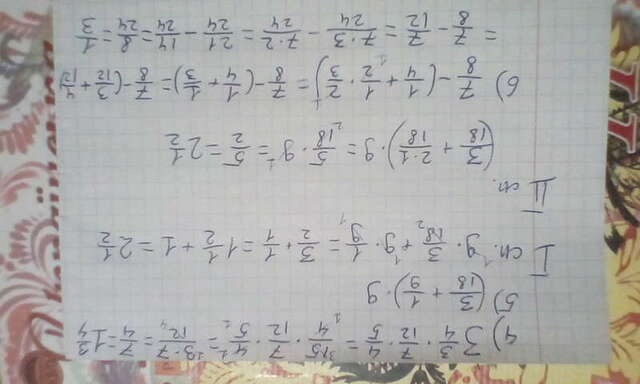 4) 3 3/4 · 7/12 · 4/5 = 15/4 · 7/12 · 4/5 = 3·7/12 = 7/4 = 1 3/4
5) (3/18 + 1/9) · 9
I сп. 9 · 3/18 + 9 · 1/9 = 3/2 + 1/1 = 1 1/2 + 1 = 2 1/2
II сп.
(3/18 + 2·1/18) · 9 = 5/18 · 9 = 5/2 = 2 1/2
6) 7/8 - (1/4 + 1/2 · 2/3) = 7/8 - (1/4 + 1/3) = 7/8 - (3/12 + 4/12)
= 7/8 - 7/12 = 7·3/24 - 7·2/24 = 21/24 - 14/24 = 8/24 = 1/3